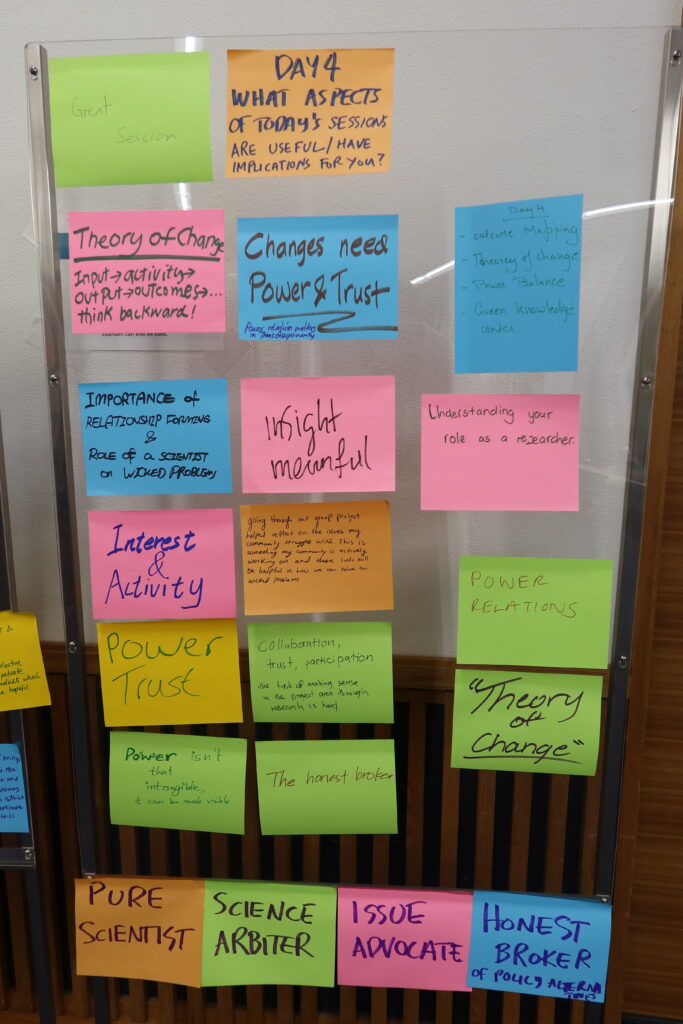 Great
Session
DAY 4
WHAT ASPECTS
OF TODAY'S SESSIONS
ARE USEFUL/HAVE
IMPLICATIONS FOR YOU?
Theory of Change
Input→activity→
output→outcomes→...
think backward!
Changes need
Power & Trust
Power relation matters
in Transdisciplinarity
Day 4
- Outcome Mapping
- Theorey of change
- Power Balance
- Green knowledge
center.
IMPORTANCE of
RELATIONSHIP FORMING
&
ROLE OF A SCIENTIST
ON WICKED PROBLEMS
Insight
meanful
Understanding your
role as a researcher.
Interest
&
Activity
going through our group project
helped reflect on the issues my
community struggles with. This is
something my community is actively
working on and these tools will
be helpful in how we can solve our
wicked problems
POWER
RELATIONS
Power
Trust
Collaboration,
trust, participation
the task of making sense
in the project area through
research is hard
"Theory
of
Change"
Power isn't
that
intangible,
it can be made visible
The honest broker
PURE
SCIENTIST
SCIENCE
ARBITER
ISSUE
ADVOCATE
HONEST
BROKER
OF POLICY ALTERNA
TIVES